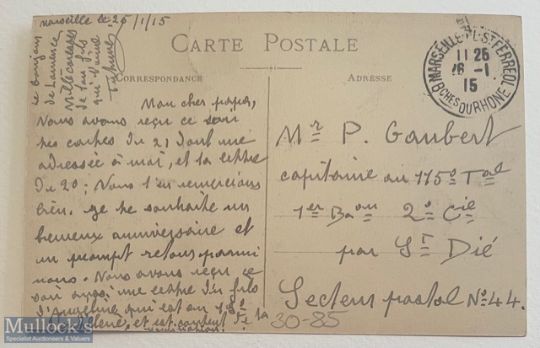 Marseille le 25/1/15
CARTE POSTALE
CORRESPONDANCE
ADRESSE
MARSEILLE PL. ST FERREOL
11 25
26 -1
15
BCHES DU RHONE
de Laurence
de ton fils
qui t'aime
Mon cher papa,
Nous avons reçu ce soir
tes cartes du 21 dont une
adressée à moi, et ta lettre
du 20; Nous t'en remercions
bien. Je te souhaite un
heureux anniversaire et
un prompt retour parmi
nous. Nous avons reçu ce
soir aussi une lettre du fils
qui est au
et est content de sa
Mr P. Gaubert
capitaine au 115º Tal
1er Baon 2º Cie
par St Dié
Secteur postal Nº 44.
30-85
Mullock's
Specialist Auctioneers & Valuers